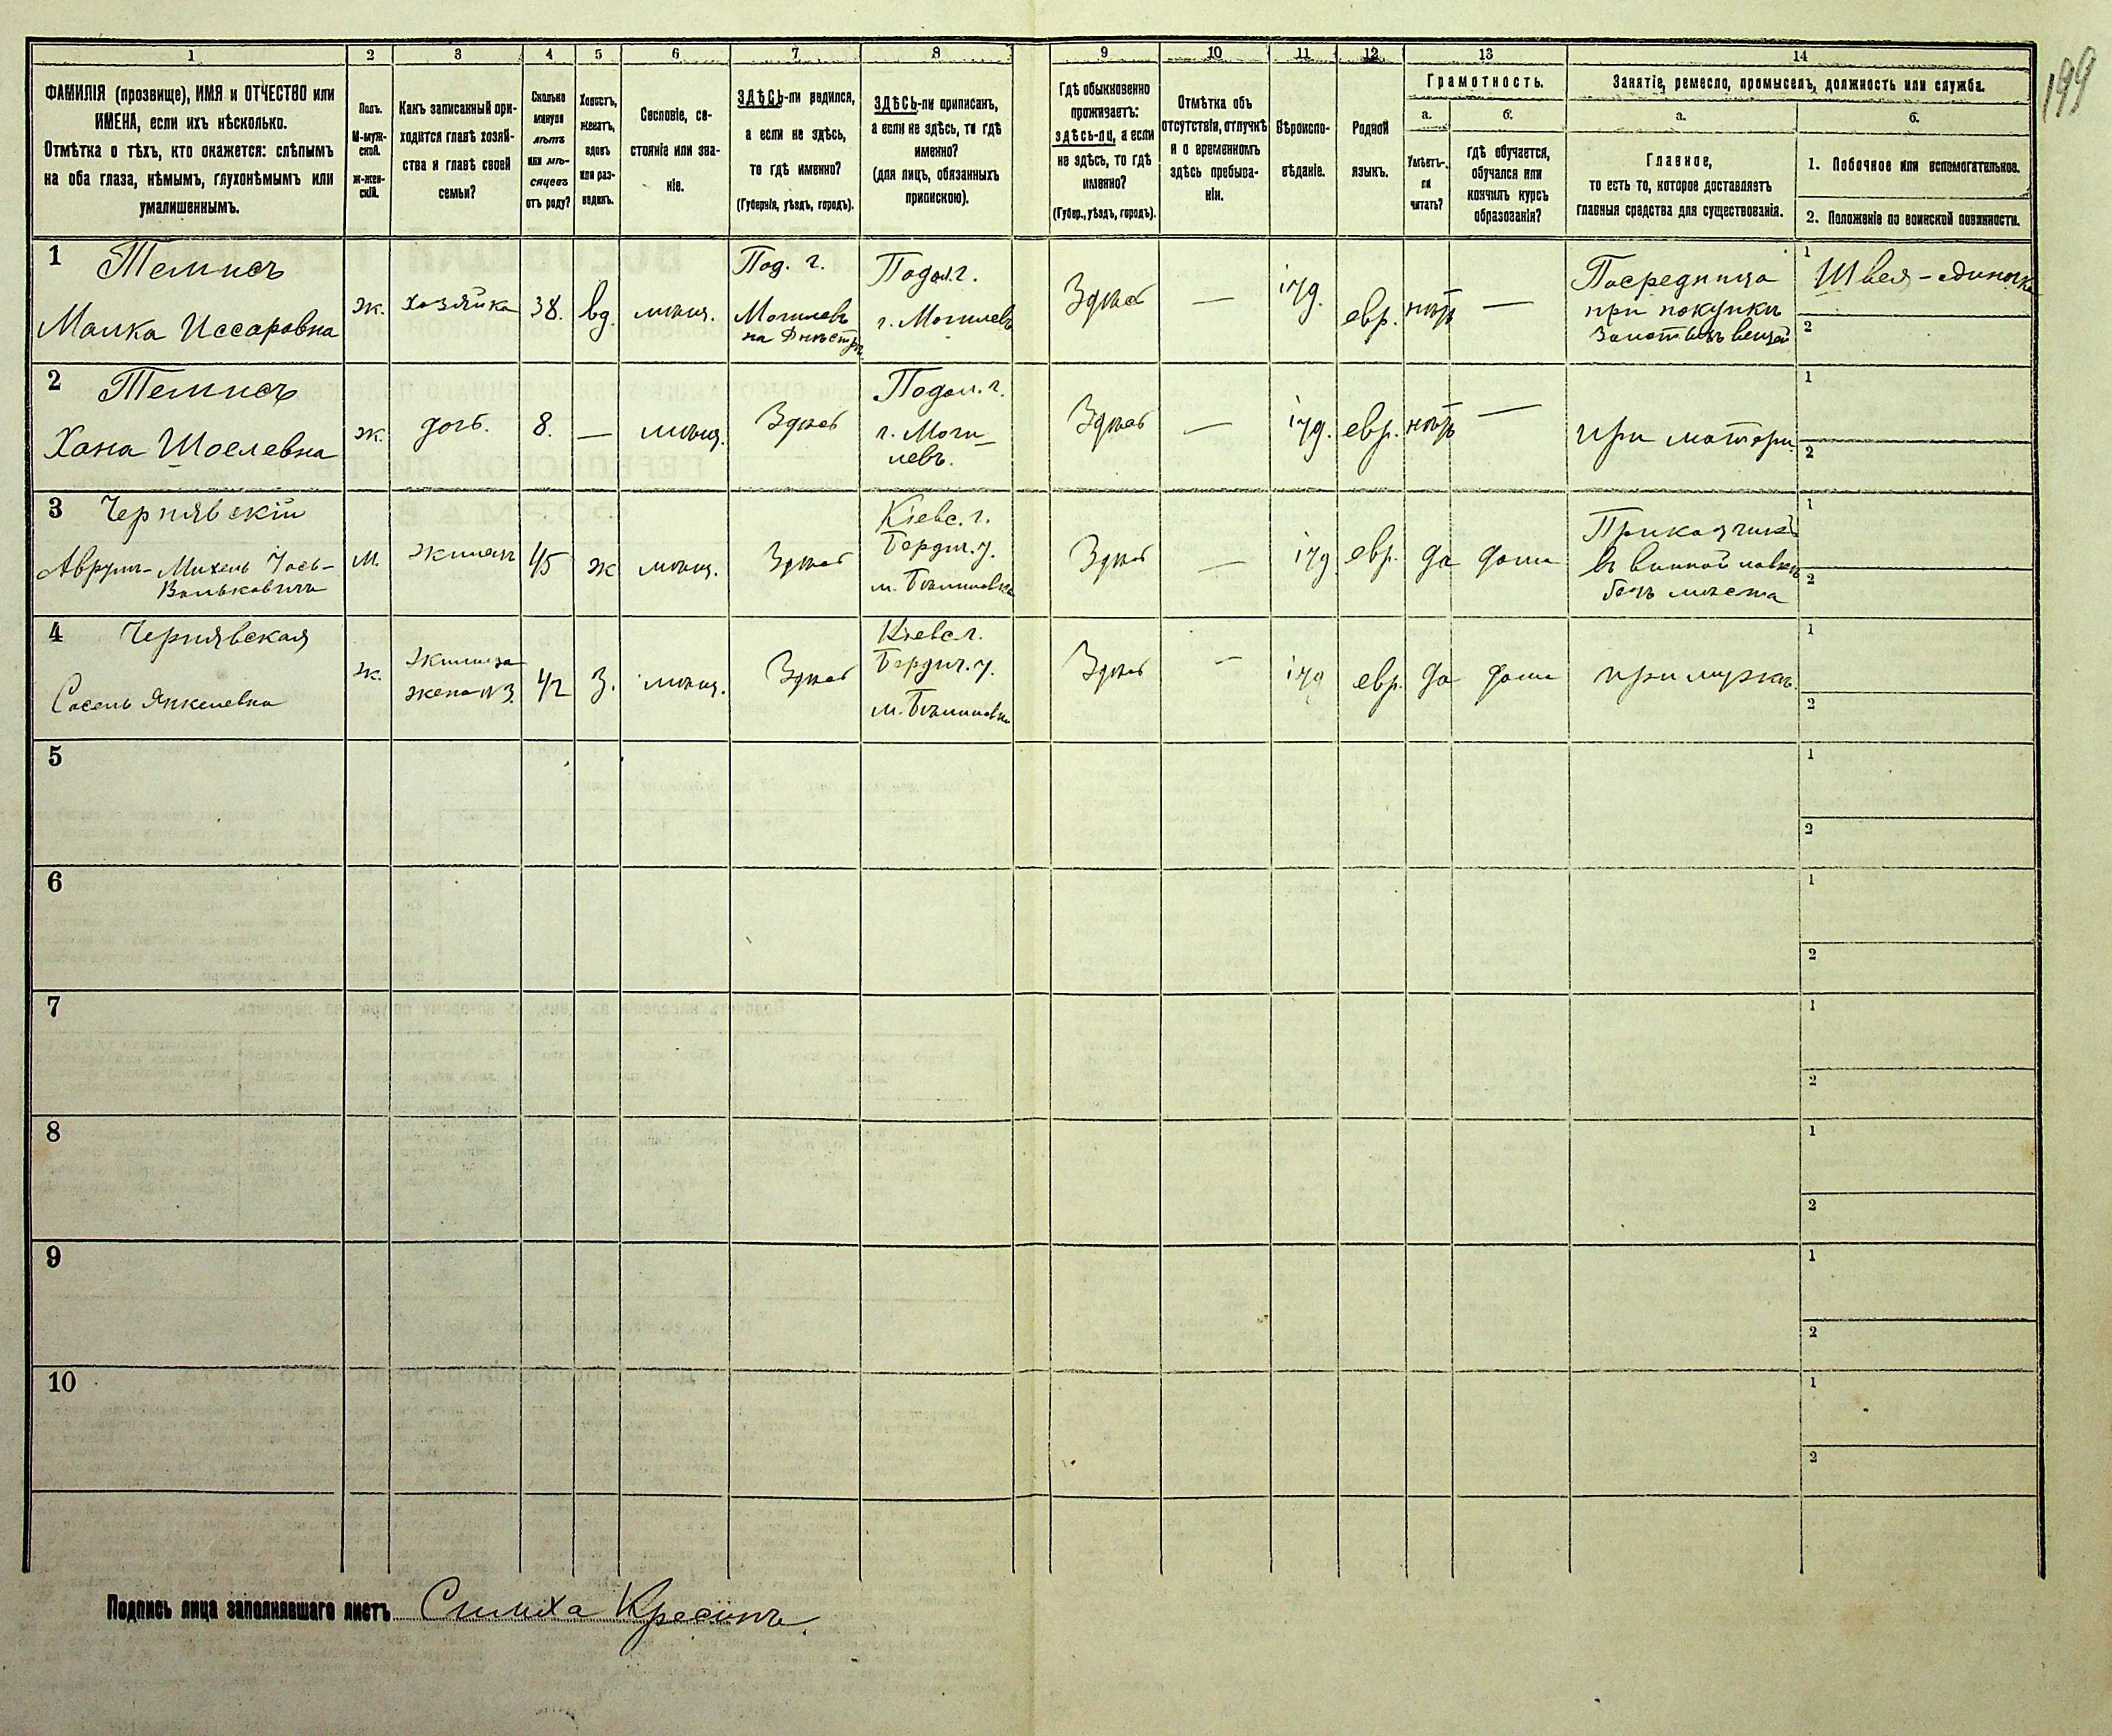 199
1
2
3
4
5
6
7
8
9
10
11
12
13
14
ФАМИЛІЯ (прозвище), ИМЯ и ОТЧЕСТВО или
ИМЕНА, если ихъ нѣсколько.
Отмѣтка о тѣхъ, кто окажется: слѣпымъ
на оба глаза, нѣмымъ, глухонѣмымъ или
умалишеннымъ.
Полъ.
М-муж-
ской.
ж-жен-
скій.
Какъ записанный при-
ходится главѣ хозяй-
ства и главѣ своей
семьи?
Сколько
минуло
лѣтъ
или мѣ-
сяцевъ
отъ роду?
Холостъ,
женатъ,
вдовъ
или раз-
веденъ.
Сословіе, со-
стояніе или зва-
ніе.
ЗДѢСЬ-ли родился,
а если не здѣсь,
то гдѣ именно?
(Губернія, уѣздъ, городъ).
ЗДѢСЬ-ли приписанъ,
а если не здѣсь, то гдѣ
именно?
(для лицъ, обязанныхъ
припискою).
Гдѣ обыкновенно
проживаетъ:
здѣсь-ли, а если
не здѣсь, то гдѣ
именно?
(Губер., уѣздъ, городъ).
Отмѣтка объ
отсутствіи, отлучкѣ
и о временномъ
здѣсь пребыва-
ніи.
Вѣроиспо-
вѣданіе.
Родной
языкъ.
Грамотность.
а.
Умѣетъ-
ли
читать?
б.
гдѣ обучается,
обучался или
кончилъ курсъ
образованія?
Занятіе, ремесло, промыселъ, должность или служба.
а.
Главное,
то есть то, которое доставляетъ
главныя средства для существованія.
б.
1. Побочное или вспомогательное.
2. Положеніе по воинской повинности.
1 Темисъ
Малка Иссаровна
ж.
хозяйка
38.
вд.
мѣщ.
Под. г.
Могилевъ
на Днѣстрѣ
Подол. г.
г. Могилевъ
Здѣсь
—
іуд.
евр.
нѣтъ
—
Посредница
при покупкѣ
золотыхъ вещей
1 Швея-одиночка
2
2 Темисъ
Хана Шоелевна
ж.
дочь.
8.
—
мѣщ.
Здѣсь
Подол. г.
г. Моги-
левъ.
Здѣсь
—
іуд.
евр.
нѣтъ
—
при матери
1
2
3 Чернявскій
Аврумъ-Михель Іось-
Вольковичъ
м.
жилецъ
45
ж
мѣщ.
Здѣсь
Кіевс. г.
Бердич. у.
м. Бѣлиловка
Здѣсь
—
іуд
евр.
да
дома
Приказчикъ
въ винной лавкѣ
безъ мѣста
1
2
4 Чернявская
Сосель Янкелевна
ж.
жилица
жена №3.
42
З.
мѣщ.
Здѣсь
Кіевс. г.
Бердич. у.
м. Бѣлиловка
Здѣсь
—
іуд
евр.
да
дома
при мужѣ.
1
2
5
1
2
6
1
2
7
1
2
8
1
2
9
1
2
10
1
2
Подпись лица заполнявшаго листъ Симха